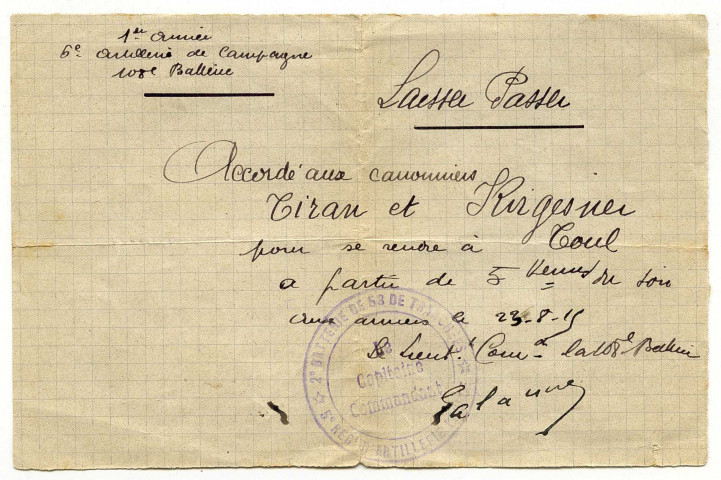 1ère Armée
6e Artillerie de Campagne
108e Batterie
Laissez Passer
Accordé aux canonniers
Tiran et Kirgesner
pour se rendre à Toul
a partir de 5 heures du soir
aux armées le 23-8-15
Le Lieut. Comdt la 108e Batterie
2e BATTERIE DE 58 DE
Le
Capitaine
Commandant
ARTILLERIE